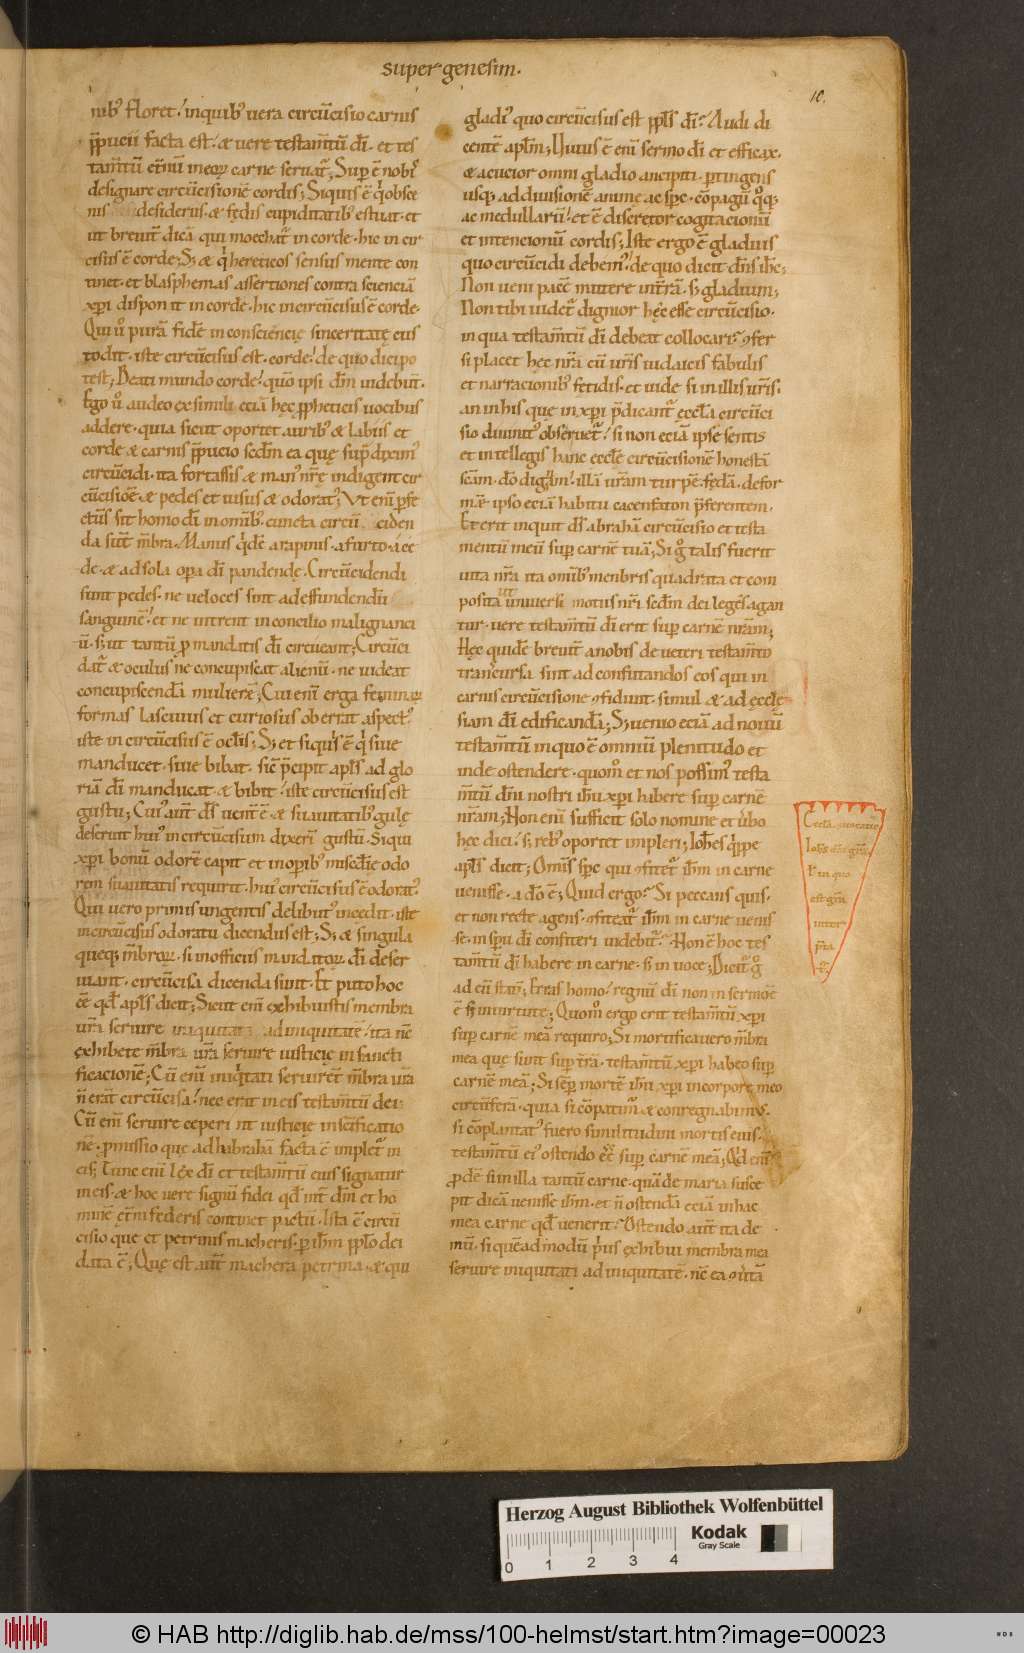 super genesim.
10.
nibꝰ floret! inquibꝰ uera circūcisio carnis
p̄pucii facta est. & uere testam̄tū dī. et tes
tam̄tū et̄nū ineoꝝ carne seruat᷑; Suꝑ ē nobꝭ
designare circūcisionē cordis; Siquis ē q̇ obsce
nis desideriis. & fędis cupiditatibꝰ estuat. et
ut breuit̄ dicā qui moechat᷑ in corde. hic in cir
cisus ē corde; S; & q̇ hereticos sensus mente con
tinet. et blasphemas assertiones contra scienciā
xp̄i disponit in corde. hic incircūcisus ē corde.
Qui ů purā fidē in consciencię sinceritatę eius
todit. iste circūcisus est. corde. de quo dici po
test; Beati mundo corde! quō ipsi dm̄ uidebūt.
Ego ů audeo ex simili eciā hęc ꝓpheticis uocibus
addere. quia sicut oportet auribꝰ & labiis et
corde & carnis p̄pucio scdm̄ ea quę sup̄ diximꝰ
circūcidi. ita fortassis & manꝰ nr̄ę indigent cir
cūcisiōe. & pedes et uisus & odoratꝰ; Vt eni ꝑfe
ctus sit homo dī in omībꝰ. cuncta circū ciden
da sūt m̄bra. Manus q̇dē a rapinis. a furto. a ce
de. & ad sola opa dī pandendę. Circūcidendi
sunt pedes. ne ueloces sint ad effundendū
sanguinē! et ne intrent in concilio malignanci
ū. s; ut tantū ꝓ mandatis dī circueant; Circūci
dat᷑ & oculus ne concupiscat alienū. ne uideat
concupiscendā mulierē; Cui enī erga feminaꝝ
formas lasciuus et curiosus oberrat aspectꝰ.
iste in circūcisus ē oclīs; S; et siquis ē q̇ siue
manducet. siue bibat. sic p̄cipit apls ad glo
riā dī manducat & bibit! iste circūcisus est
gustu; Cuiꝰ aut̄ dś uent̄ ē & suauitatibꝰ gulę
deseruit huiꝰ in circūcisum dixerī gustū. Siqui
xp̄i bonū odorē capit et in operibꝰ misc̄dię odo
rem suauitatis requirit. huiꝰ circūcisus ē odoratꝰ.
Qui uero primis ungentis delibutꝰ incedit. iste
in circūcisus odoratu dicendus est; S; & singula
queq; m̄broꝝ. si in officiis mandatoꝝ dī deser
uiant. circūcisa dicenda sunt. Et puto hoc
eē qd̄ apls dicit; Sicut enī exhibuistis membra
ur̄a seruire iniquitati ad iniquitatē! ita nē
exhibete m̄bra ur̄a seruire iusticię in sancti
ficacionē; Cū enī iniq̇tati seruirēt m̄bra ur̄a
n̄ erāt circūcisa! nec erit in eis testam̄tū dei.
Cū enī seruire ceperī nt iusticię in sc̄ificatio
nē. ꝓmissio quę ad habrahā facta ē implet᷑ in
eis; Tunc enī lex dī et testam̄tū eius signatur
in eis. & hoc uere signū fidei qd̄ int̄ dm̄ et ho
minē et̄ni federis continet pactū. Ista ē circū
cisio que et petrinis macheris. ꝑ ihm̄ pplo dei
data ē; Quę est aut̄ machera petrina. & qui
gladiꝰ quo circūcisus est ppls dī? Audi di
centē aplm̄; Viuus ē enī sermo dī et efficax.
& acucior omni gladio ancipiti. ꝑtingens
usq; ad diuisionē animę ac spc. cōpagū q̊q;
ac medullarū! et ē discretor cogitacionū
et intencionū cordis; Iste ergo ē gladius
quo circūcidi debemꝰ! de quo dicit dn̄s ihc;
Non ueni pacē mittere int̄rā. s; gladium;
Non tibi uidet᷑ dignior hęc esse circūcisio.
in qua testam̄tū dī debeat collocari? ꝯfer
si placet hęc nr̄a cū ur̄is iudaicis fabulis
et narracionibꝰ fętidis. et uide si in illis ur̄is.
an in his que in xp̄i p̄dicant᷑ ęccla circūci
sio diuinitꝰ obseruet᷑! si non eciā ipse sentis
et intellegis hanc ecclę circūcisionē honestā
scām. dō dignā! illā ur̄am turpē. fędā. defor
mē. ipso eciā habitu cacenfaton p̄ferentem.
Et erit inquit dś abrahā circūcisio et testa
mentū meū suꝑ carnē tuā; Si g̊ talis fuerit
uita nr̄a ita omībꝰ menbris quadrata et com
posita ut uniuersi motus nr̄i scdm̄ dei leges agan
tur. uere testam̄tū dī erit suꝑ carnē nr̄am;
Hęc quidē breuit̄ a nobis de ueteri testam̄to
trancursa sint ad confutandos eos qui in
carnis circūcisione ꝯfidunt. simul & ad ęccle
siam dī edificandā; S; uenio eciā ad nouū
testam̄tū in quo ē omniū plenitudo et
inde ostendere. quom̊ et nos possimꝰ testa
m̄tū dn̄i nostri ihū xp̄i habere suꝑ carnē
nr̄am; Non enī sufficit solo nomine et ůbo
hęc dici! s; rebꝰ oportet impleri; Iohēs q̇ppe
apls dicit; Omīs spc qui ꝯfitet᷑ ihm̄ in carne
uenisse. a dō ē; Quid ergo? Si peccans quis.
et non recte agens. ꝯfiteat᷑ ihm̄ in carne uenis
se. in spu dī confiteri uidebit᷑? Non ē hoc tes
tam̄tū dī habere in carne. s; in uoce; Dicit᷑ g̊
ad eū statī; Erras homo! regnū dī non in sermōe
ē s; in uirtute; Quom̊ ergo erit testam̄tū xp̄i
suꝑ carnē meā requiro; Si mortificauero m̄bra
mea quę sunt suꝑ t̄rā. testam̄tū xp̄i habeo suꝑ
carnē meā; Si seꝑ mortē ihū xp̄i in corpore meo
circūferā. quia si cōpatimꝰ & conregnabimꝰ.
si cōplantatꝰ fuero similitudini mortis eius.
testam̄tū eiꝰ ostendo eē suꝑ carnē meā; Qd enī
ꝓdē si in illa tantū carne. quā de maria susce
pit dicā uenisse ihm̄. et n̄ ostendā eciā in hac
mea carne qd̄ uenerit? Ostendo aut̄ ita de
mū. si quēadmodū p̓us exhibui membra mea
seruire iniquitati ad iniquitatē. nc̄ ea ꝯůtā
est
inter
Herzog August Bibliothek Wolfenbüttel
Kodak
Gray Scale
0 1 2 3 4
© HAB http://diglib.hab.de/mss/100-helmst/start.htm?image=00023